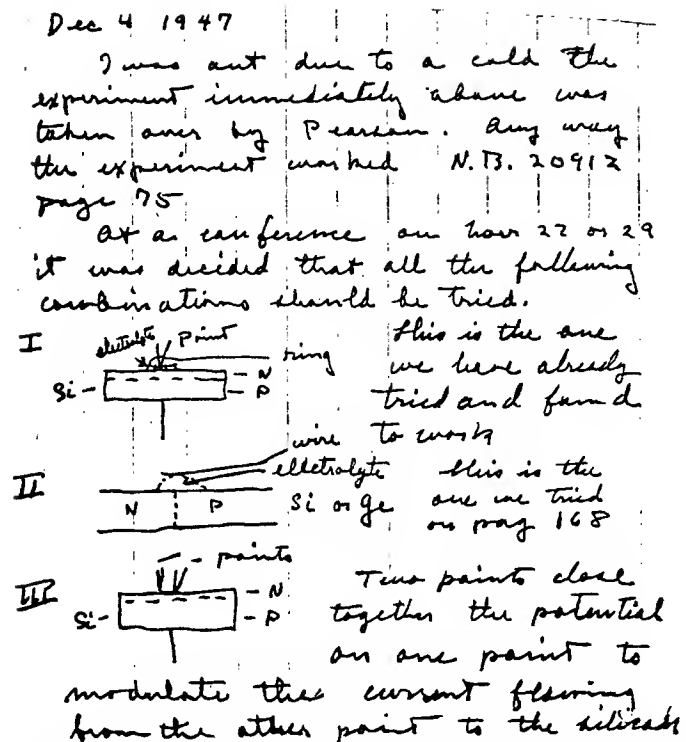 Dec 4 1947
I was out due to a cold the
experiment immediately above was
taken over by Pearson. Any way
the experiment worked N.B. 20912
page 75
At a conference on Nov 22 or 29
it was decided that all the following
combinations should be tried.
I electrolyte point ring
Si N P
This is the one
we have already
tried and found
to work
II wire electrolyte
N P Si or Ge
This is the
one we tried
on pag 168
III points
Si N P
Two points close
together the potential
on one point to
modulate the current flowing
from the other point to the silicon